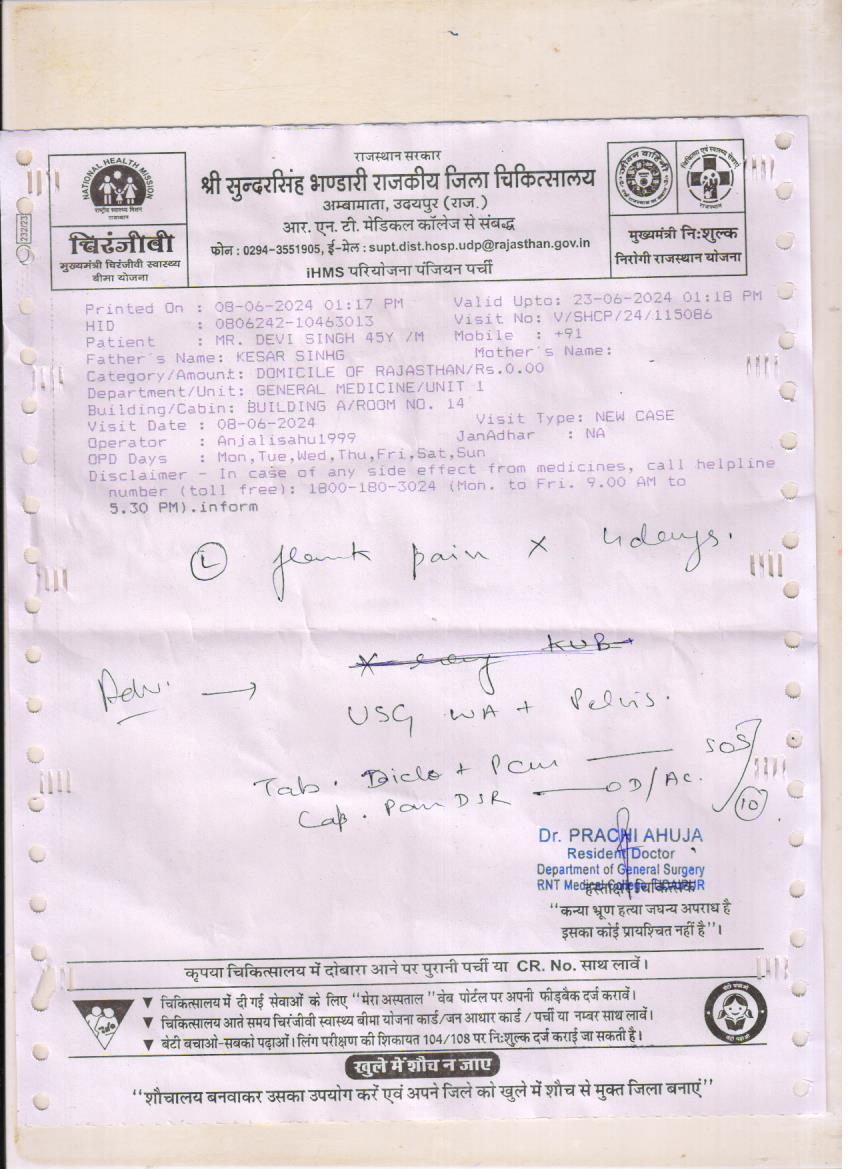 राजस्थान सरकार
श्री सुन्दरसिंह भण्डारी राजकीय जिला चिकित्सालय
अम्बामाता, उदयपुर (राज.)
आर. एन. टी. मेडिकल कॉलेज से संबद्ध
फोन : 0294-3551905, ई-मेल : supt.dist.hosp.udp@rajasthan.gov.in
iHMS परियोजना पंजियन पर्ची
NATIONAL HEALTH MISSION
चिरंजीवी
मुख्यमंत्री चिरंजीवी स्वास्थ्य
बीमा योजना
मुख्यमंत्री निःशुल्क
निरोगी राजस्थान योजना
232/23
Printed On : 08-06-2024 01:17 PM Valid Upto: 23-06-2024 01:18 PM
HID : 0806242-10463013 Visit No: V/SHCP/24/115086
Patient : MR. DEVI SINGH 45Y /M Mobile : +91
Father's Name: KESAR SINHG Mother's Name:
Category/Amount: DOMICILE OF RAJASTHAN/Rs.0.00
Department/Unit: GENERAL MEDICINE/UNIT 1
Building/Cabin: BUILDING A/ROOM NO. 14
Visit Date : 08-06-2024 Visit Type: NEW CASE
Operator : Anjalisahu1999 JanAdhar : NA
OPD Days : Mon,Tue,Wed,Thu,Fri,Sat,Sun
Disclaimer - In case of any side effect from medicines, call helpline
number (toll free): 1800-180-3024 (Mon. to Fri. 9.00 AM to
5.30 PM).inform
(L) flank pain x 4 days.
X-ray KUB
Adv. → USG WA + Pelvis.
Tab. Diclo + Pcm — SOS
Cap. Pan DSR — OD/AC. (10)
Dr. PRACHI AHUJA
Resident Doctor
Department of General Surgery
RNT Medical College, UDAIPUR
हस्ताक्षर चिकित्सक
"कन्या भ्रूण हत्या जघन्य अपराध है
इसका कोई प्रायश्चित नहीं है"।
कृपया चिकित्सालय में दोबारा आने पर पुरानी पर्ची या CR. No. साथ लावें।
▼ चिकित्सालय में दी गई सेवाओं के लिए "मेरा अस्पताल" वेब पोर्टल पर अपनी फीडबैक दर्ज करावें।
▼ चिकित्सालय आते समय चिरंजीवी स्वास्थ्य बीमा योजना कार्ड/जन आधार कार्ड / पर्ची या नम्बर साथ लावें।
▼ बेटी बचाओ-सबको पढ़ाओ। लिंग परीक्षण की शिकायत 104/108 पर निःशुल्क दर्ज कराई जा सकती है।
खुले में शौच न जाए
"शौचालय बनवाकर उसका उपयोग करें एवं अपने जिले को खुले में शौच से मुक्त जिला बनाएं"